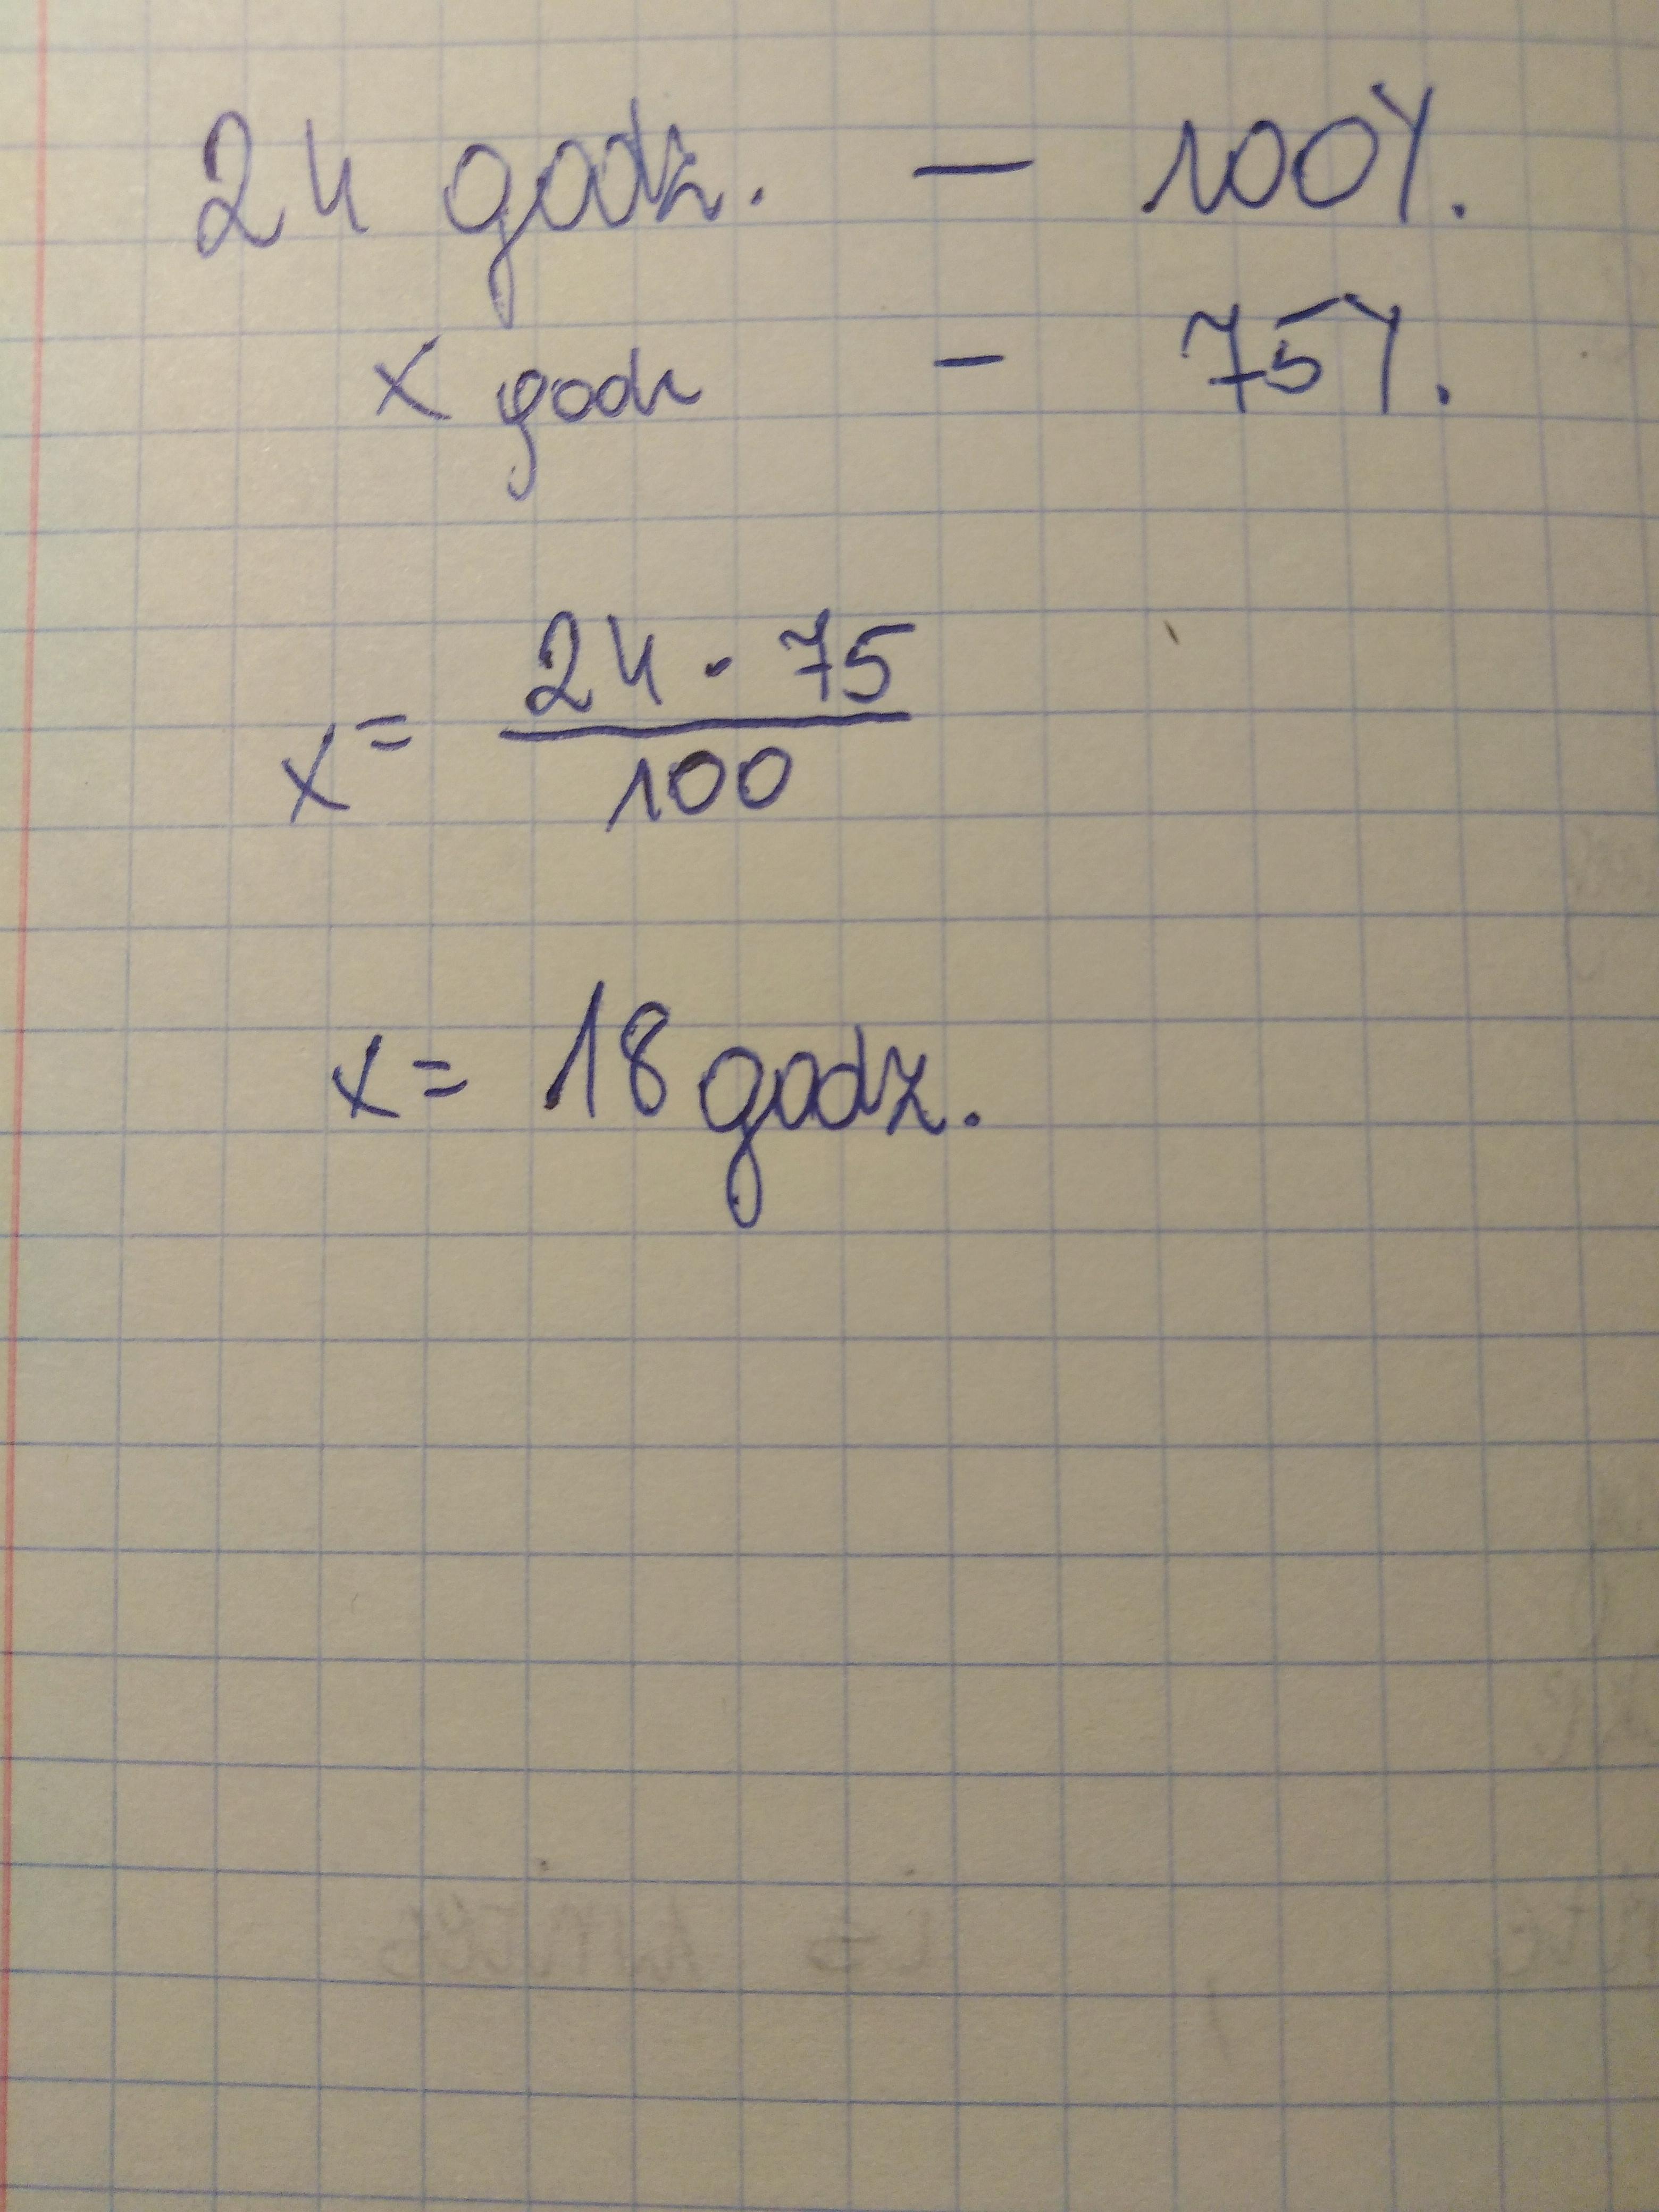 24 godz. — 100%
x godz - 75%
x = 24 · 75 / 100
x = 18 godz.